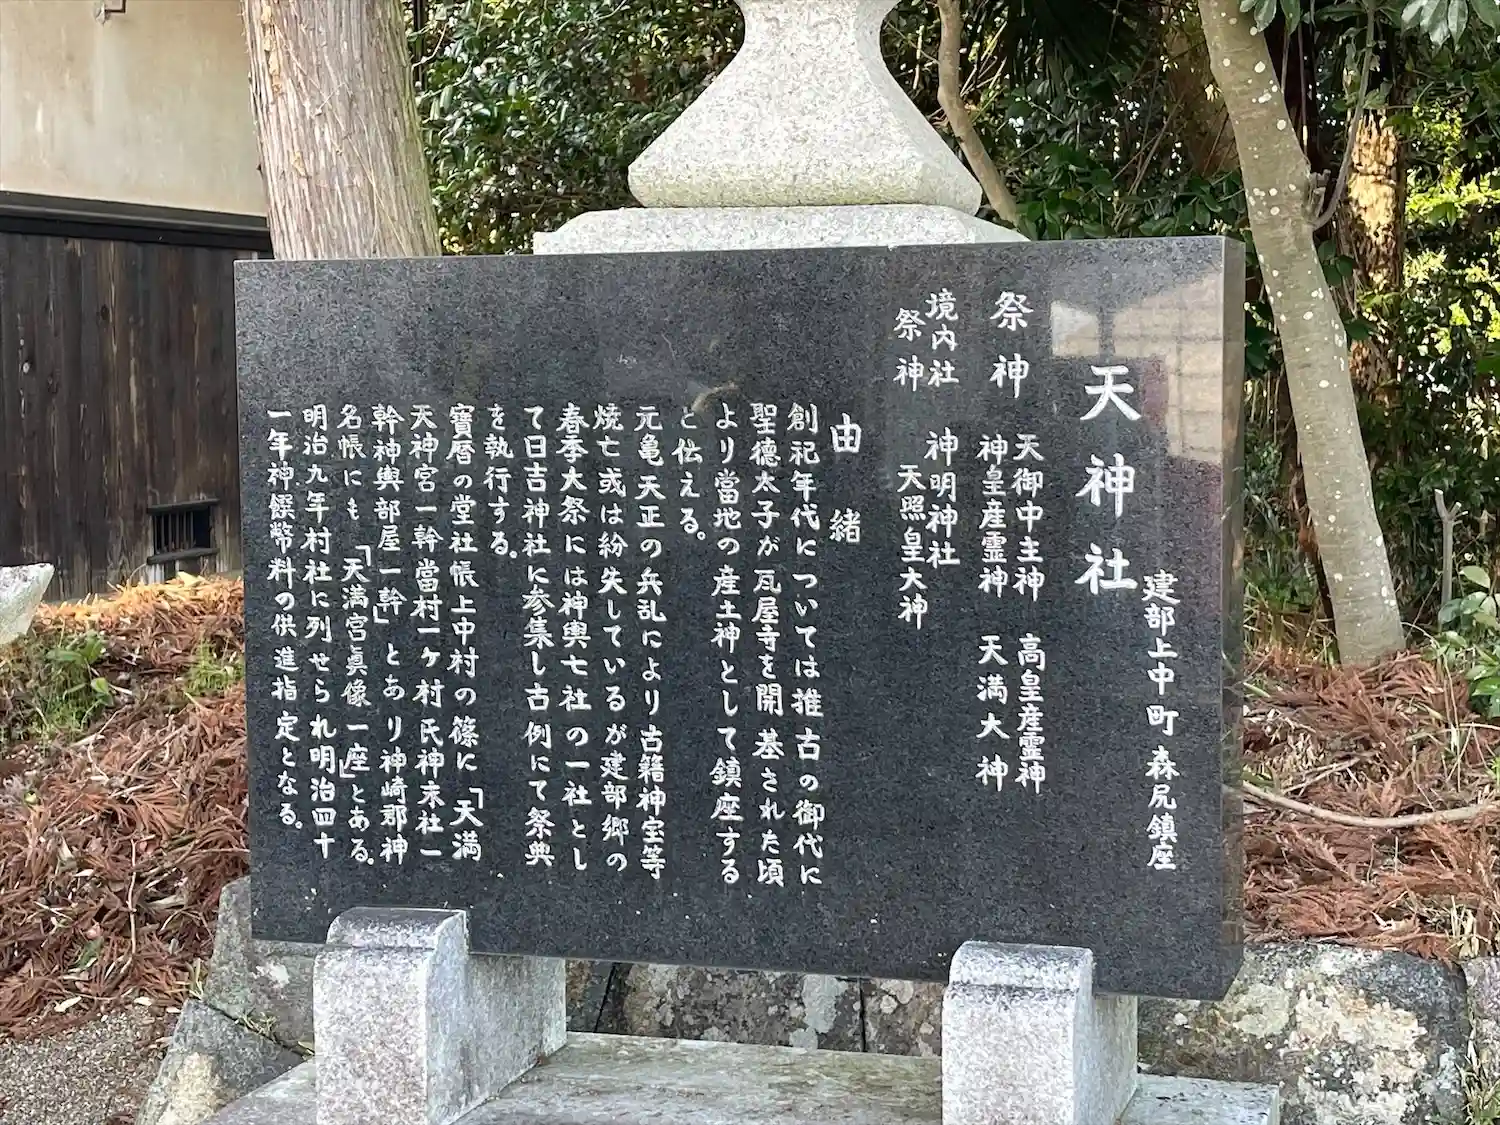 天神社
建部上中町森尻鎮座
祭神
天御中主神 高皇産霊神
神皇産霊神 天満大神
境内社 神明神社
祭神 天照皇大神
由緒
創祀年代については推古の御代に
聖徳太子が瓦屋寺を開基された頃
より當地の産土神として鎮座する
と伝える。
元亀天正の兵乱により古籍神宝等
焼亡或は紛失しているが建部郷の
春季大祭には神輿七社の一社とし
て日吉神社に参集し古例にて祭典
を執行する。
寶暦の堂社帳上中村の篠に「天満
天神宮一幹當村一ケ村氏神末社一
幹神輿部屋一幹」とあり神崎郡神
名帳にも「天満宮眞像一座」とある。
明治九年村社に列せられ明治四十
一年神饌幣料の供進指定となる。